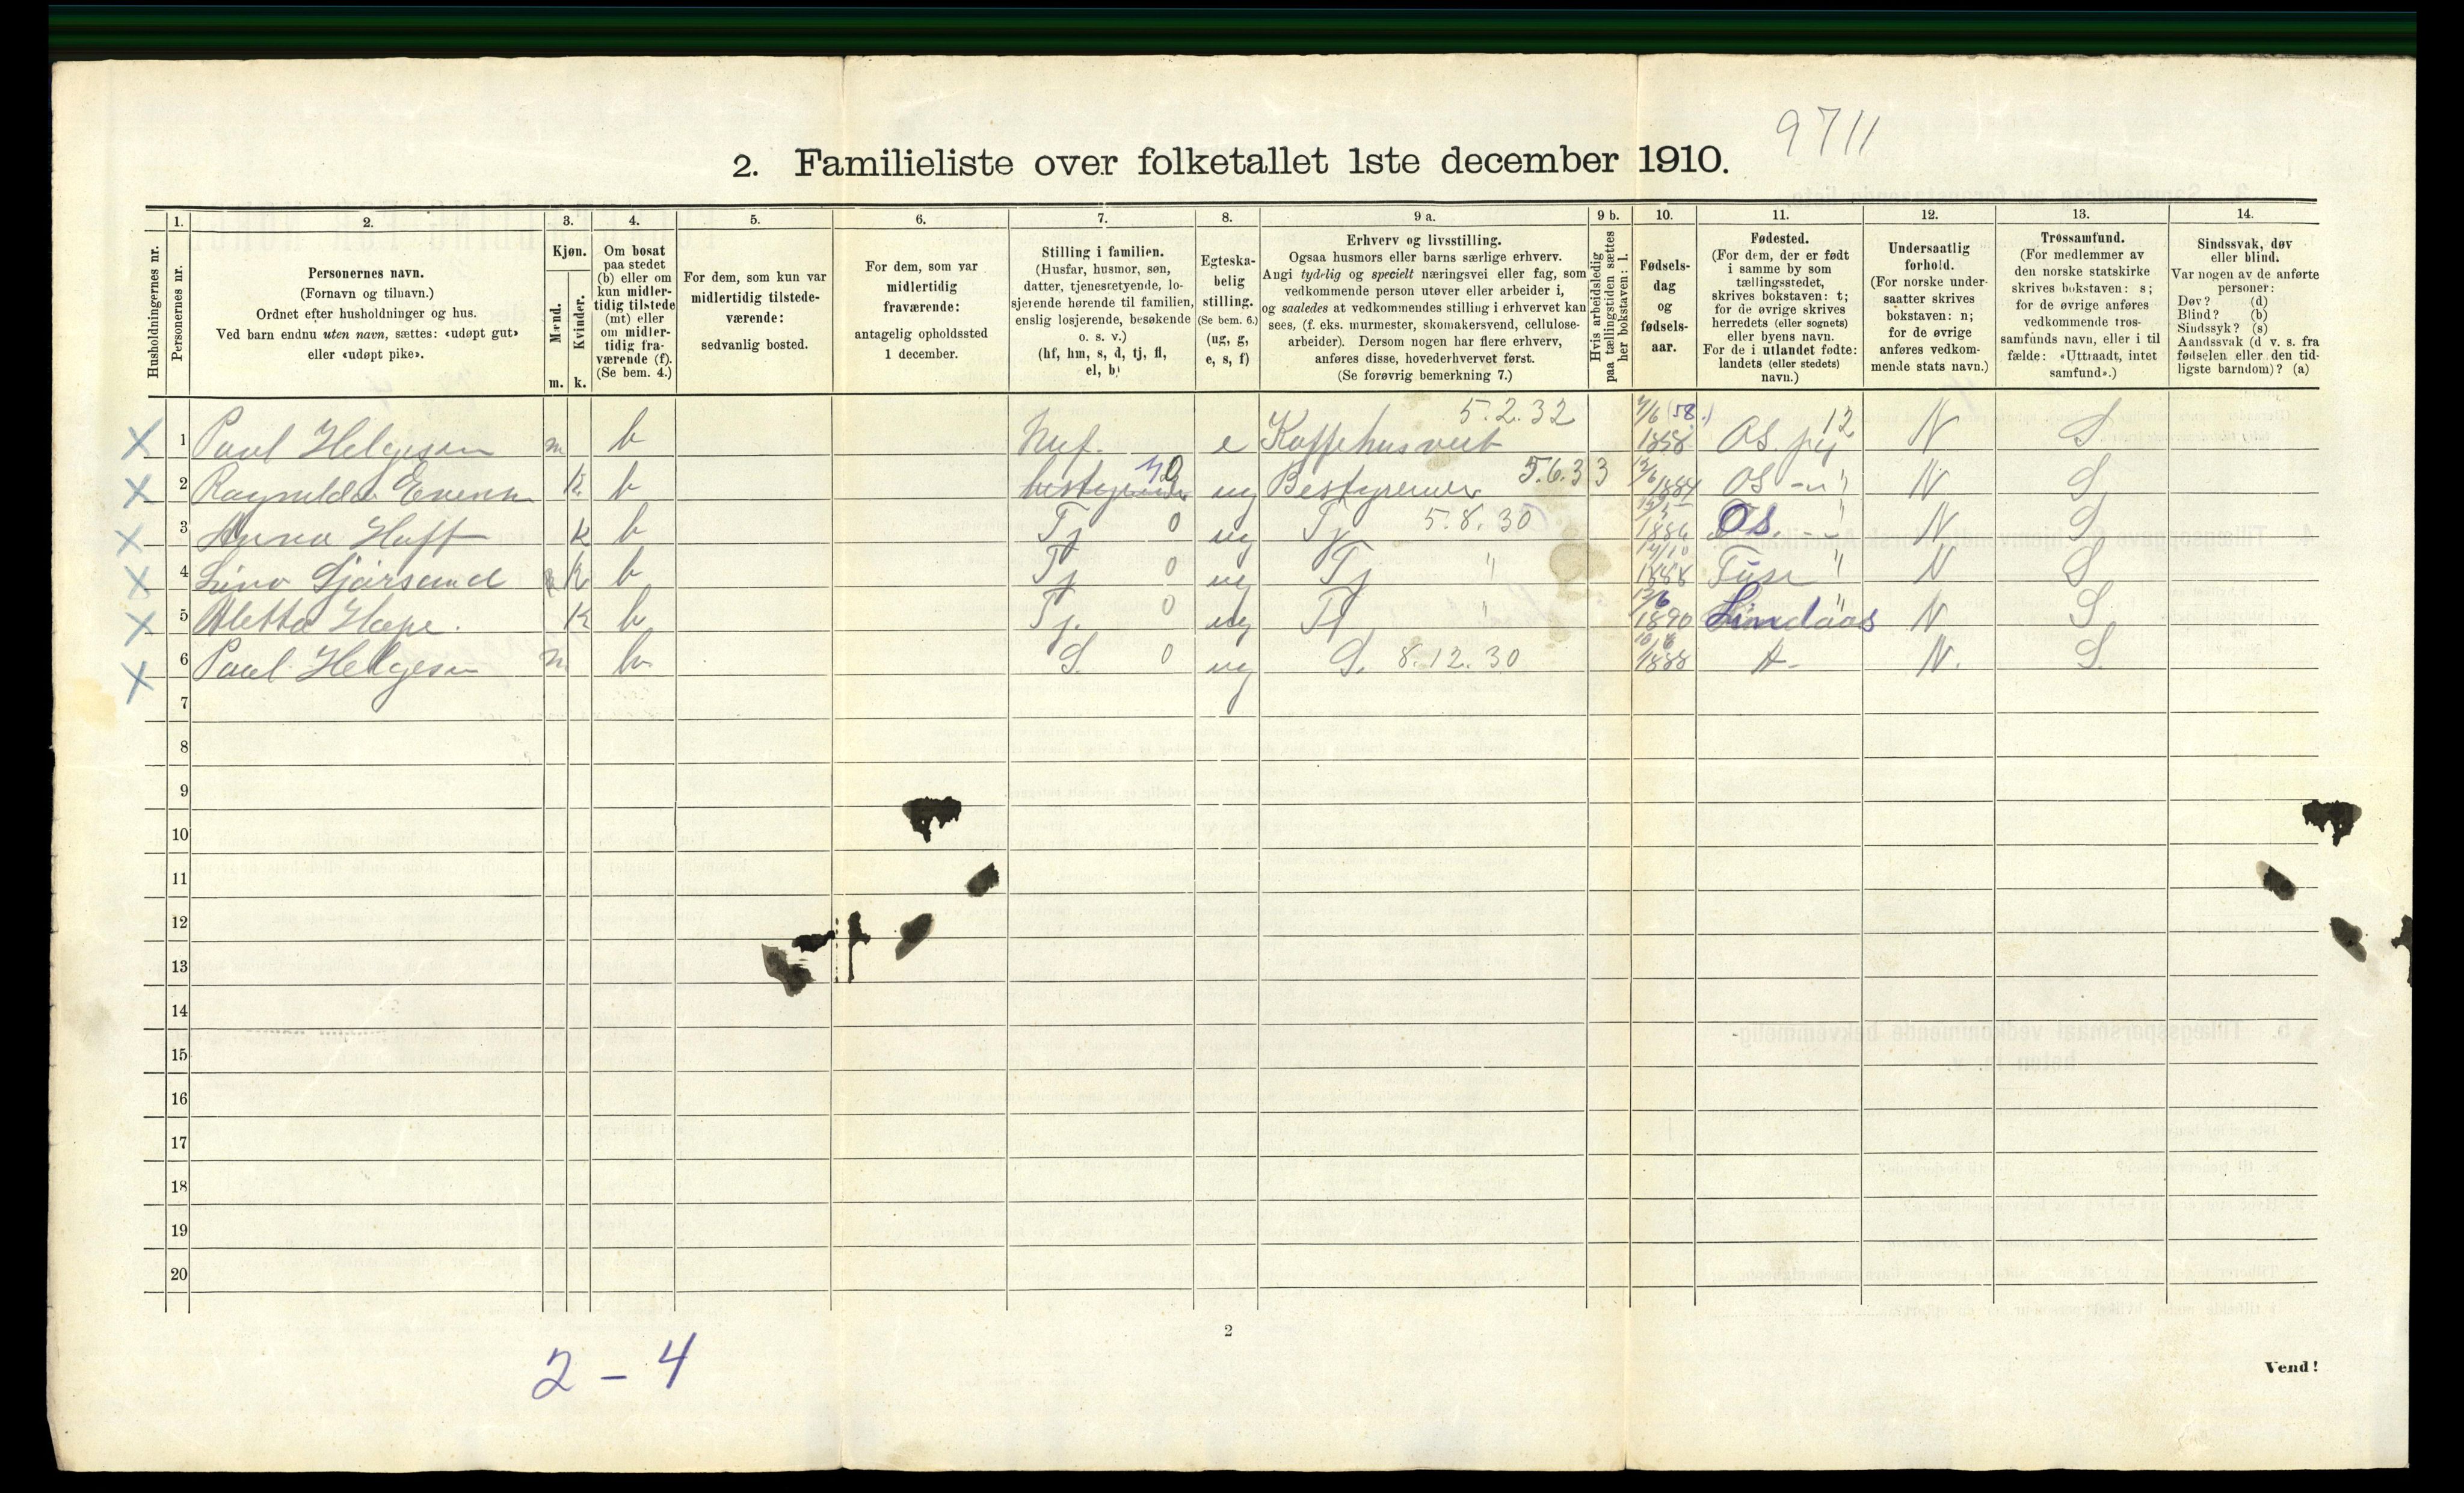 9711
2. Familieliste over folketallet 1ste december 1910.
Husholdningernes nr.
1. Personernes nr.
2. Personernes navn.
(Fornavn og tilnavn.)
Ordnet efter husholdninger og hus.
Ved barn endnu uten navn, sættes: «udøpt gut»
eller «udøpt pike».
3. Kjøn.
Mænd. m.
Kvinder. k.
4. Om bosat
paa stedet
(b) eller om
kun midler-
tidig tilstede
(mt) eller
om midler-
tidig fra-
værende (f).
(Se bem. 4.)
5. For dem, som kun var
midlertidig tilstede-
værende:
sedvanlig bosted.
6. For dem, som var
midlertidig
fraværende:
antagelig opholdssted
1 december.
7. Stilling i familien.
(Husfar, husmor, søn,
datter, tjenestetyende, lo-
sjerende hørende til familien,
enslig losjerende, besøkende
o. s. v.)
(hf, hm, s, d, tj, fl,
el, b)
8. Egteska-
belig
stilling.
(Se bem. 6.)
(ug, g,
e, s, f)
9 a. Erhverv og livsstilling.
Ogsaa husmors eller barns særlige erhverv.
Angi tydelig og specielt næringsvei eller fag, som
vedkommende person utøver eller arbeider i,
og saaledes at vedkommendes stilling i erhvervet kan
sees, (f. eks. murmester, skomakersvend, cellulose-
arbeider). Dersom nogen har flere erhverv,
anføres disse, hovederhvervet først.
(Se forøvrig bemerkning 7.)
9 b. Hvis arbeidsledig
paa tællingstiden sættes
her bokstaven: l.
10. Fødsels-
dag
og
fødsels-
aar.
11. Fødested.
(For dem, der er født
i samme by som
tællingsstedet,
skrives bokstaven: t;
for de øvrige skrives
herredets (eller sognets)
eller byens navn.
For de i utlandet fødte:
landets (eller stedets)
navn.)
12. Undersaatlig
forhold.
(For norske under-
saatter skrives
bokstaven: n;
for de øvrige
anføres vedkom-
mende stats navn.)
13. Trossamfund.
(For medlemmer av
den norske statskirke
skrives bokstaven: s;
for de øvrige anføres
vedkommende tros-
samfunds navn, eller i til-
fælde: «Uttraadt, intet
samfund».)
14. Sindssvak, døv
eller blind.
Var nogen av de anførte
personer:
Døv? (d)
Blind? (b)
Sindssyk? (s)
Aandssvak (d. v. s. fra
fødselen eller den tid-
ligste barndom)? (a)
X 1 Paul Helgesen m b Huf. e Kaffehusvert 5.2.32 1858 Os 12 N S
X 2 Ragnilda k b ug Bestyrerner 5.6.33 1884 Os " N S
X 3 Anna Hoff k b Tj 0 ug Tj 5.8.30 1886 Os " N S
X 4 k b Tj 0 ug Tj " 1888 Fuse " N S
X 5 Aletta Hope. k b Tj. 0 ug Tj " 1890 Lindaas N S
X 6 Paul Helgesen m b S. 0 ug S. 8.12.30 1888 N. S.
7
8
9
10
11
12
13
14
15
16
17
18
19
20
2
2 - 4
Vend!